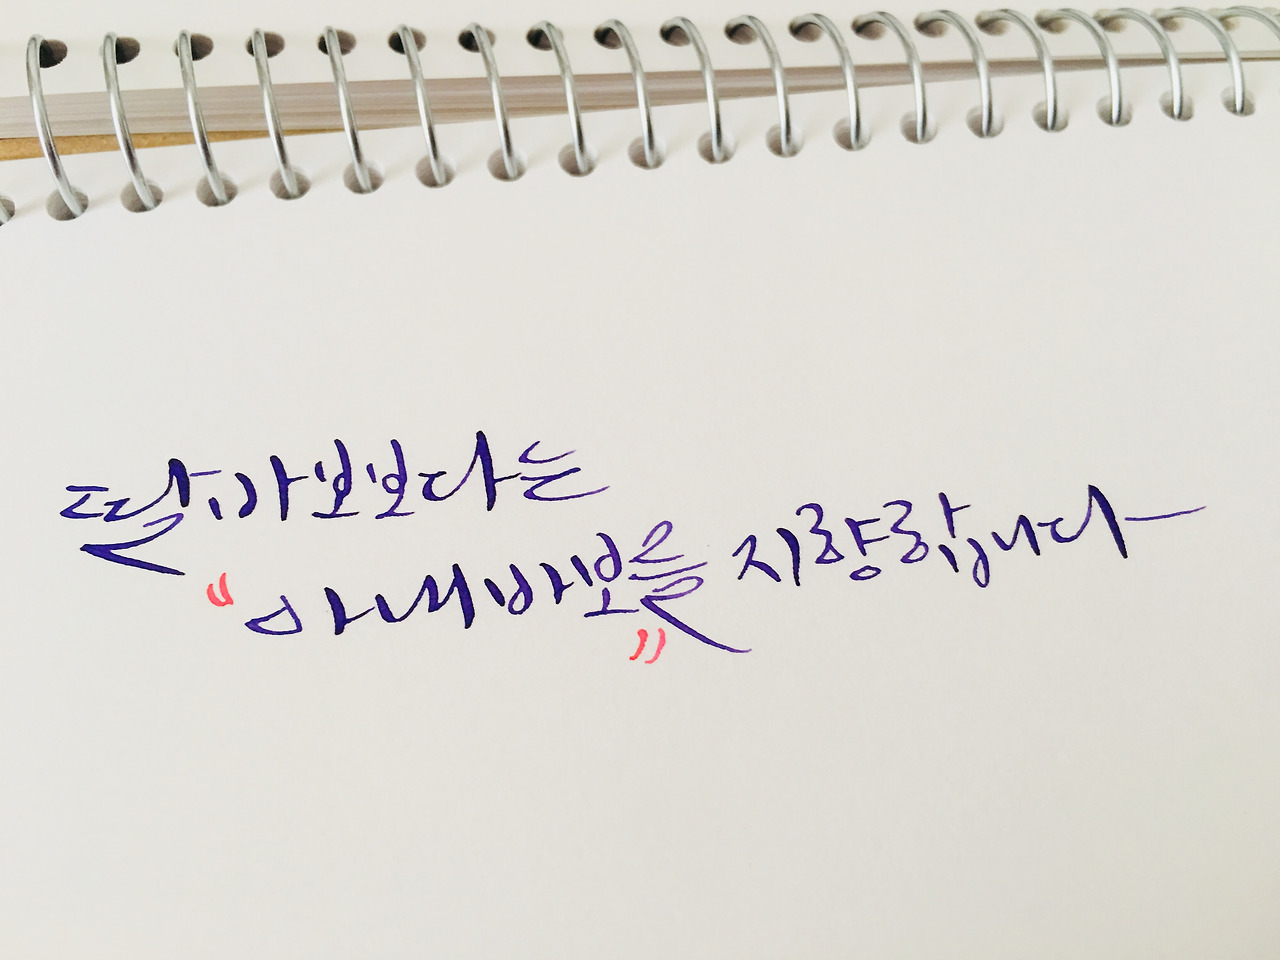 딸바보보다는
"아내바보를 지향합니다
"